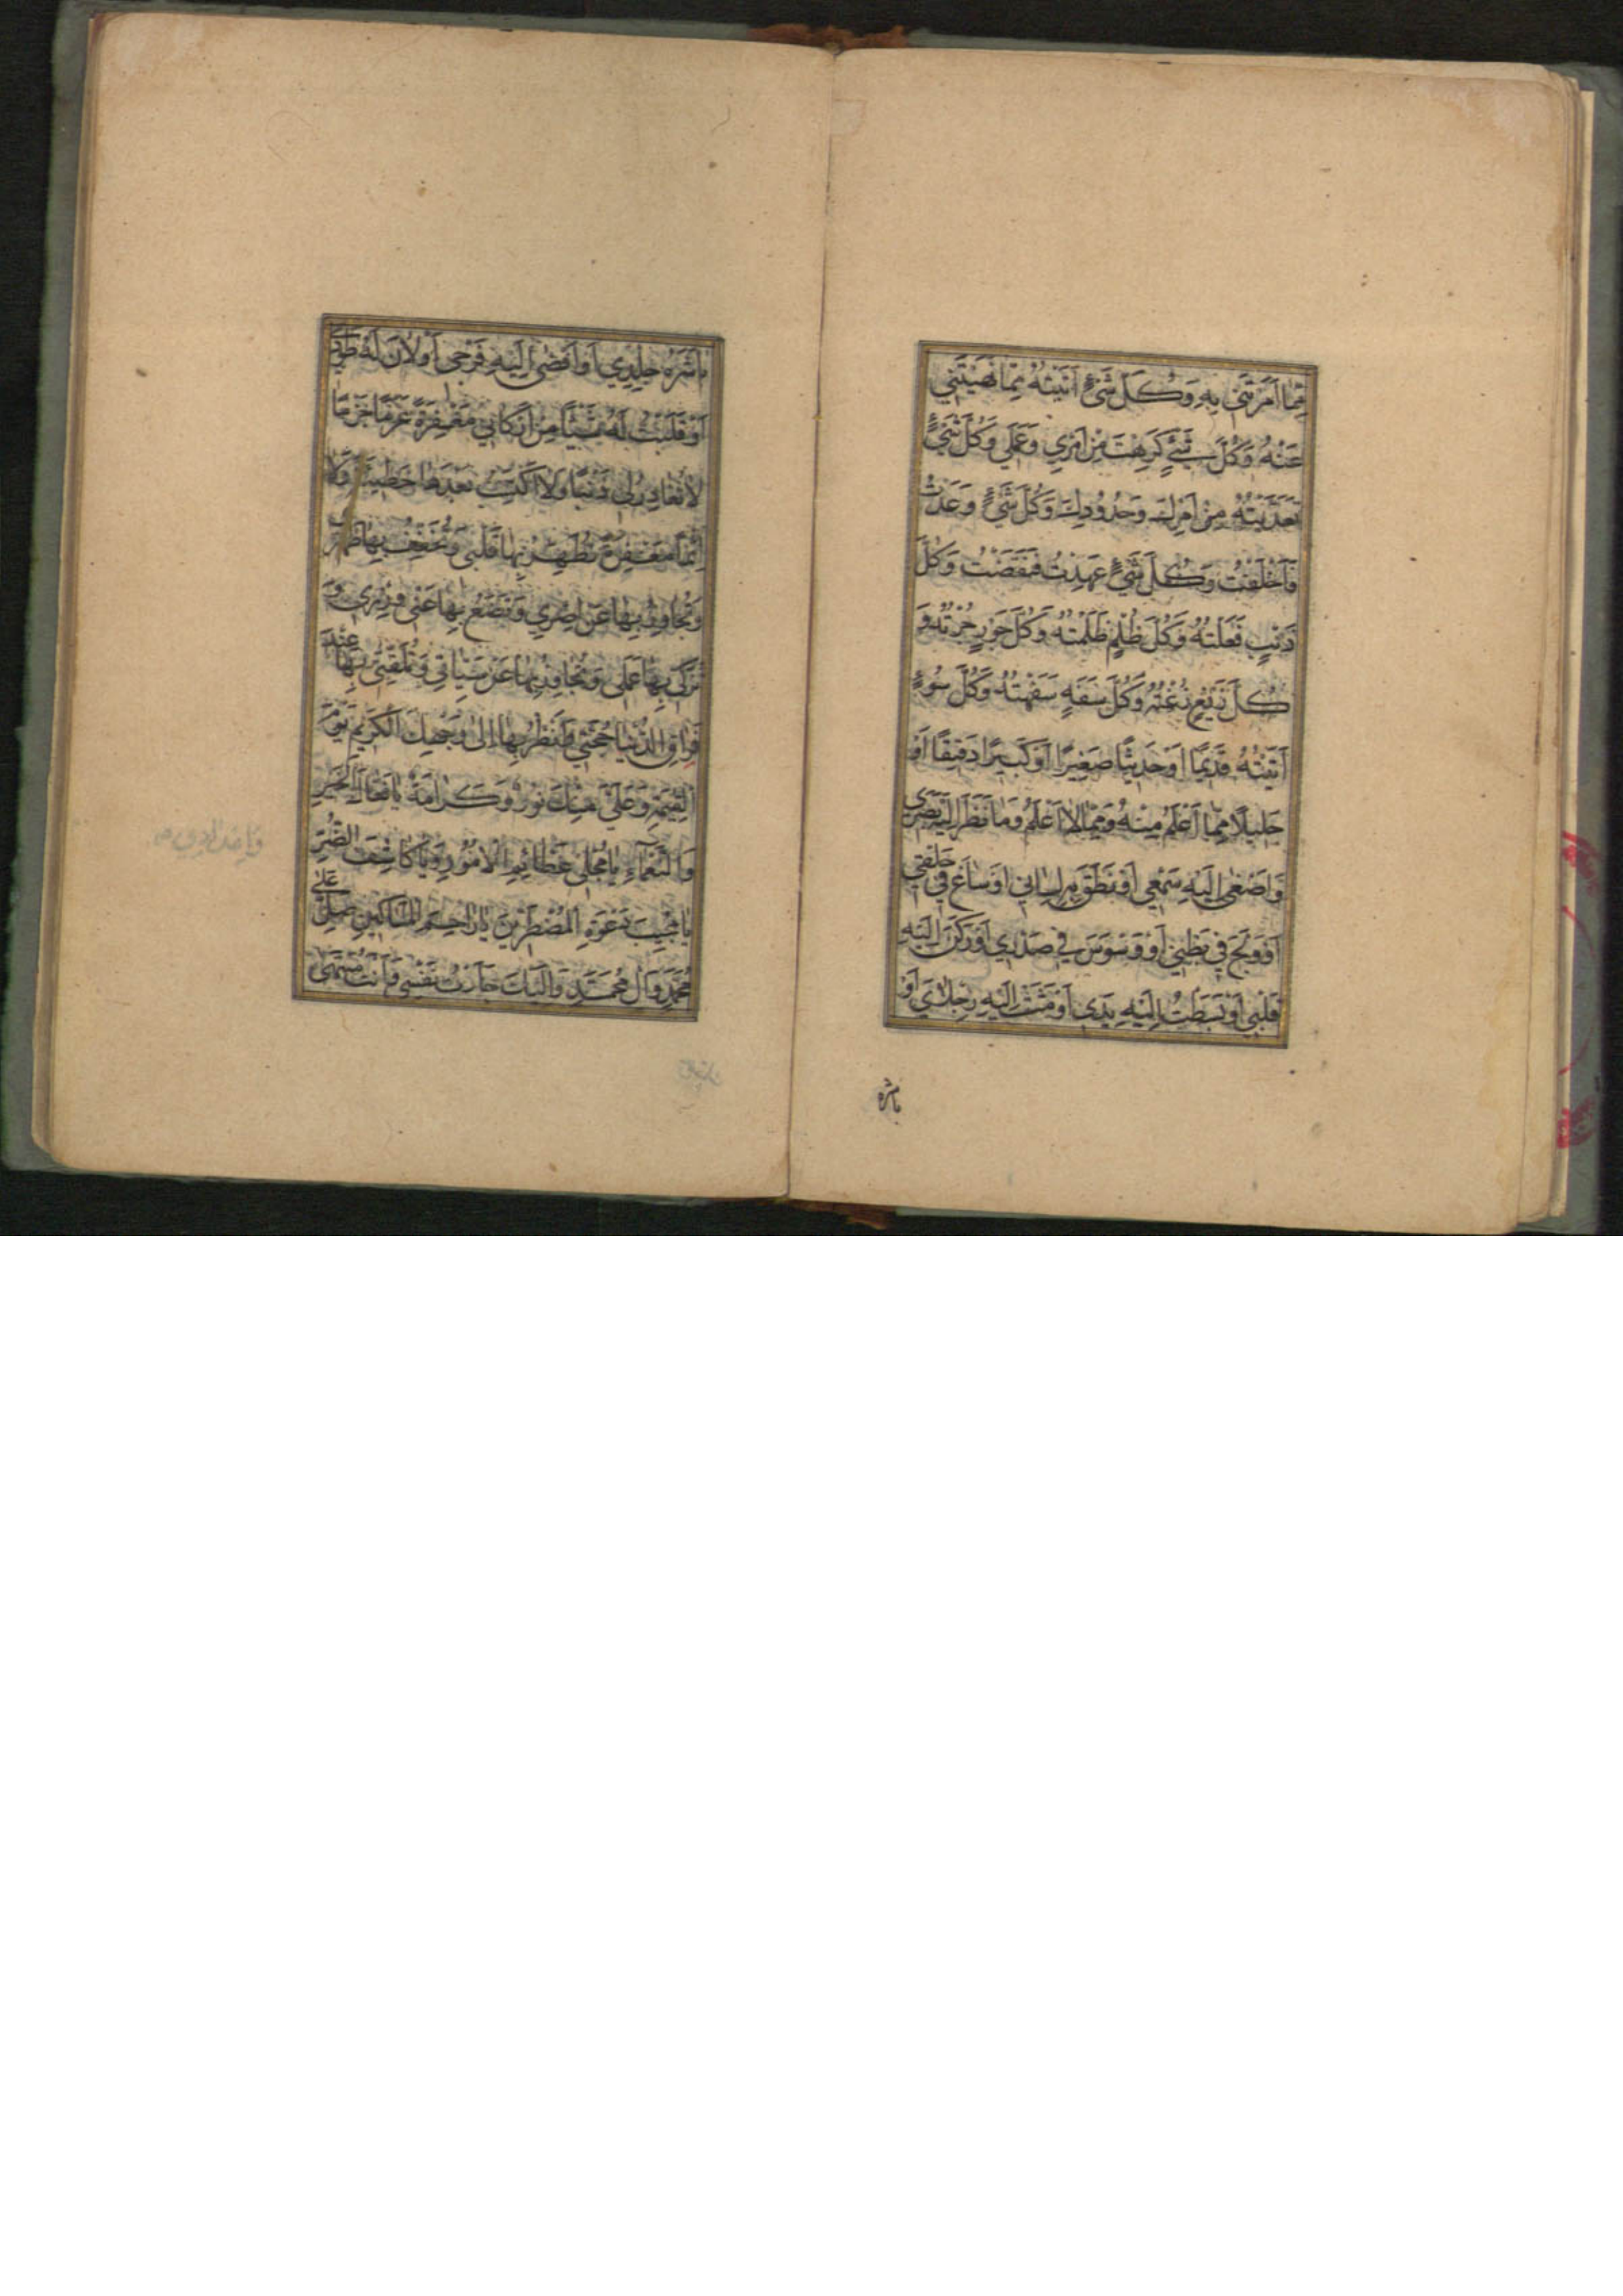 مِمَّا اَمَرْتَنَی بِهِ وَکُلَّ شَیْءٍ اَتَیْتُهُ مِمَّا نَهَیْتَنِی
عَنْهُ وَکُلَّ شَیْءٍ کَرِهْتَ مِنْ اَمْرِی وَعَمَلِی وَکُلَّ شَیْءٍ
تَعَدَّیْتُهُ مِنْ اَمْرِكَ وَحُدُودِكَ وَکُلَّ شَیْءٍ وَعَدْتُ
فَاَخْلَفْتُ وَکُلَّ شَیْءٍ عَهِدْتُ فَنَقَضْتُ وَکُلَّ
ذَنْبٍ فَعَلْتُهُ وَکُلَّ ظُلْمٍ ظَلَمْتُهُ وَکُلَّ جَوْرٍ جُرْتُهُ وَ
کُلَّ زَیْغٍ زُغْتُهُ وَکُلَّ سَفَهٍ سَفَهْتُهُ وَکُلَّ سُوءٍ
اَتَیْتُهُ قَدِیمًا اَوْ حَدِیثًا صَغِیرًا اَوْ کَبِیرًا دَقِیقًا اَوْ
جَلِیلًا مِمَّا اَعْلَمُ مِنْهُ وَمِمَّا لَا اَعْلَمُ وَمَا نَظَرَ اِلَیْهِ بَصَرِی
وَاَصْغٰی اِلَیْهِ سَمْعِی اَوْ نَطَقَ بِهِ لِسَانِی اَوْ سَاغَ فِی حَلْقِی
اَوْ وَلَجَ فِی بَطْنِی اَوْ وَسْوَسَ فِی صَدْرِی اَوْ رَکَنَ اِلَیْهِ
قَلْبِی اَوْ بَسَطْتُ اِلَیْهِ یَدِی اَوْ مَشَتْ اِلَیْهِ رِجْلَایَ اَوْ
باشره
بَاشَرَهُ جِلْدِی اَوْ اَفْضٰی اِلَیْهِ فَرْجِی اَوْ لَانَ لَهُ طَوْرِی
اَوْ قَلَبْتُ لَهُ شَیْئًا مِنْ اَرْکَانِی مَغْفِرَةً عَزْمًا جَزْمًا
لَا تُغَادِرُ لِی ذَنْبًا وَلَا اَکْتَسِبُ بَعْدَهَا خَطِیئَةً وَلَا
اِثْمًا مَغْفِرَةً تُطَهِّرُ بِهَا قَلْبِی وَتُخَفِّفُ بِهَا ظَهْرِی
وَتُجَاوِزُ بِهَا عَنْ اِصْرِی وَتَضَعُ بِهَا عَنِّی وِزْرِی وَ
تُزَکِّی بِهَا عَمَلِی وَتُجَاوِزُ بِهَا عَنْ سَیِّئَاتِی وَتُلَقِّنِی بِهَا عِنْدَ
فِرَاقِ الدُّنْیَا حُجَّتِی وَاَنْظُرُ بِهَا اِلٰی وَجْهِكَ الْکَرِیمِ یَوْمَ
الْقِیٰمَةِ وَعَلَیَّ مِنْكَ نُورٌ وَکَرَامَةٌ یَا فَعَّالَ الْخَیْرِ
وَالنَّعْمَاءِ یَا مُجَلِّیَ عَظَائِمِ الْاُمُورِ وَیَا کَاشِفَ الضُّرِّ
یَا مُجِیبَ دَعْوَةِ الْمُضْطَرِّینَ یَا رَاحِمَ الْمَسَاکِینِ صَلِّ عَلٰی
مُحَمَّدٍ وَاٰلِ مُحَمَّدٍ وَاِلَیْكَ جَأَرَتْ نَفْسِی وَاَنْتَ مُنْتَهٰی